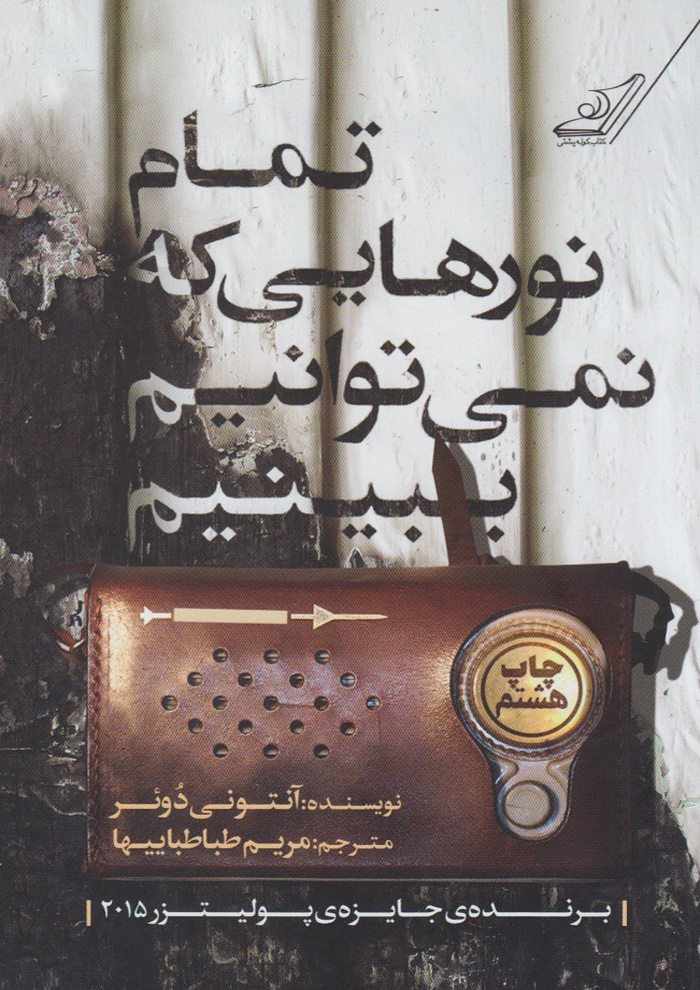 کتاب کوله پشتی
تمام
نورهایی که
نمی‌توانیم
ببینیم
چاپ
هشتم
نویسنده: آنتونی دُوئر
مترجم: مریم طباطباییها
برنده‌ی جایزه‌ی پولیتزر ۲۰۱۵